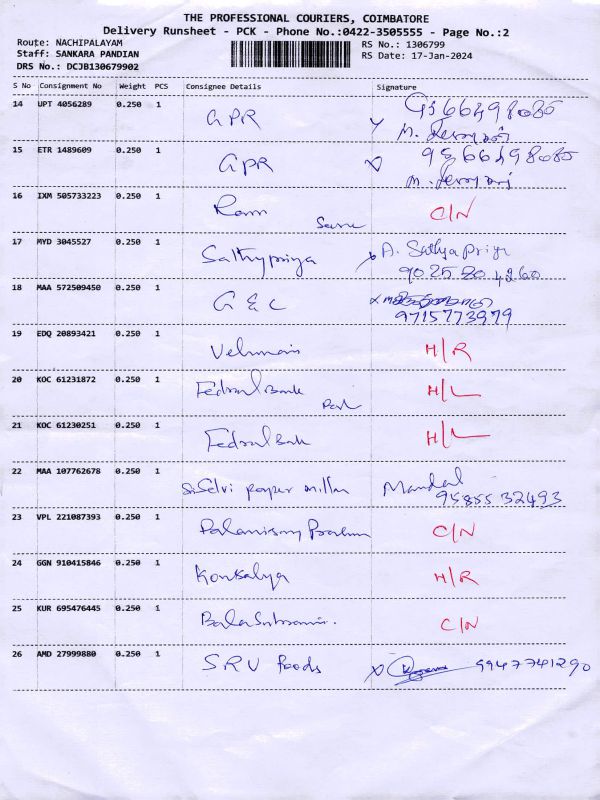 THE PROFESSIONAL COURIERS, COIMBATORE
Delivery Runsheet - PCK - Phone No.:0422-3505555 - Page No.:2
Route: NACHIPALAYAM
RS No.: 1306799
Staff: SANKARA PANDIAN
RS Date: 17-Jan-2024
DRS No.: DCJB130679902
S No Consignment No Weight PCS Consignee Details Signature
14 UPT 4056289 0.250 1 GPR
15 ETR 1489609 0.250 1 GPR 9566498085
16 IXM 505733223 0.250 1 Ram C/N
17 MYD 3045527 0.250 1 Sathypriya A. Sathya Priya
9025204260
18 MAA 572509450 0.250 1 G & C
9715773979
19 EDQ 20893421 0.250 1 H/R
20 KOC 61231872 0.250 1 Fedral Bank H/L
21 KOC 61230251 0.250 1 Fedral Bank H/L
22 MAA 107762678 0.250 1 Sri Selvi paper Mandal
9585532493
23 VPL 221087393 0.250 1 C/N
24 GGN 910415846 0.250 1 Konsalya H/R
25 KUR 695476445 0.250 1 C/N
26 AMD 27999880 0.250 1 SRV foods 9947741290